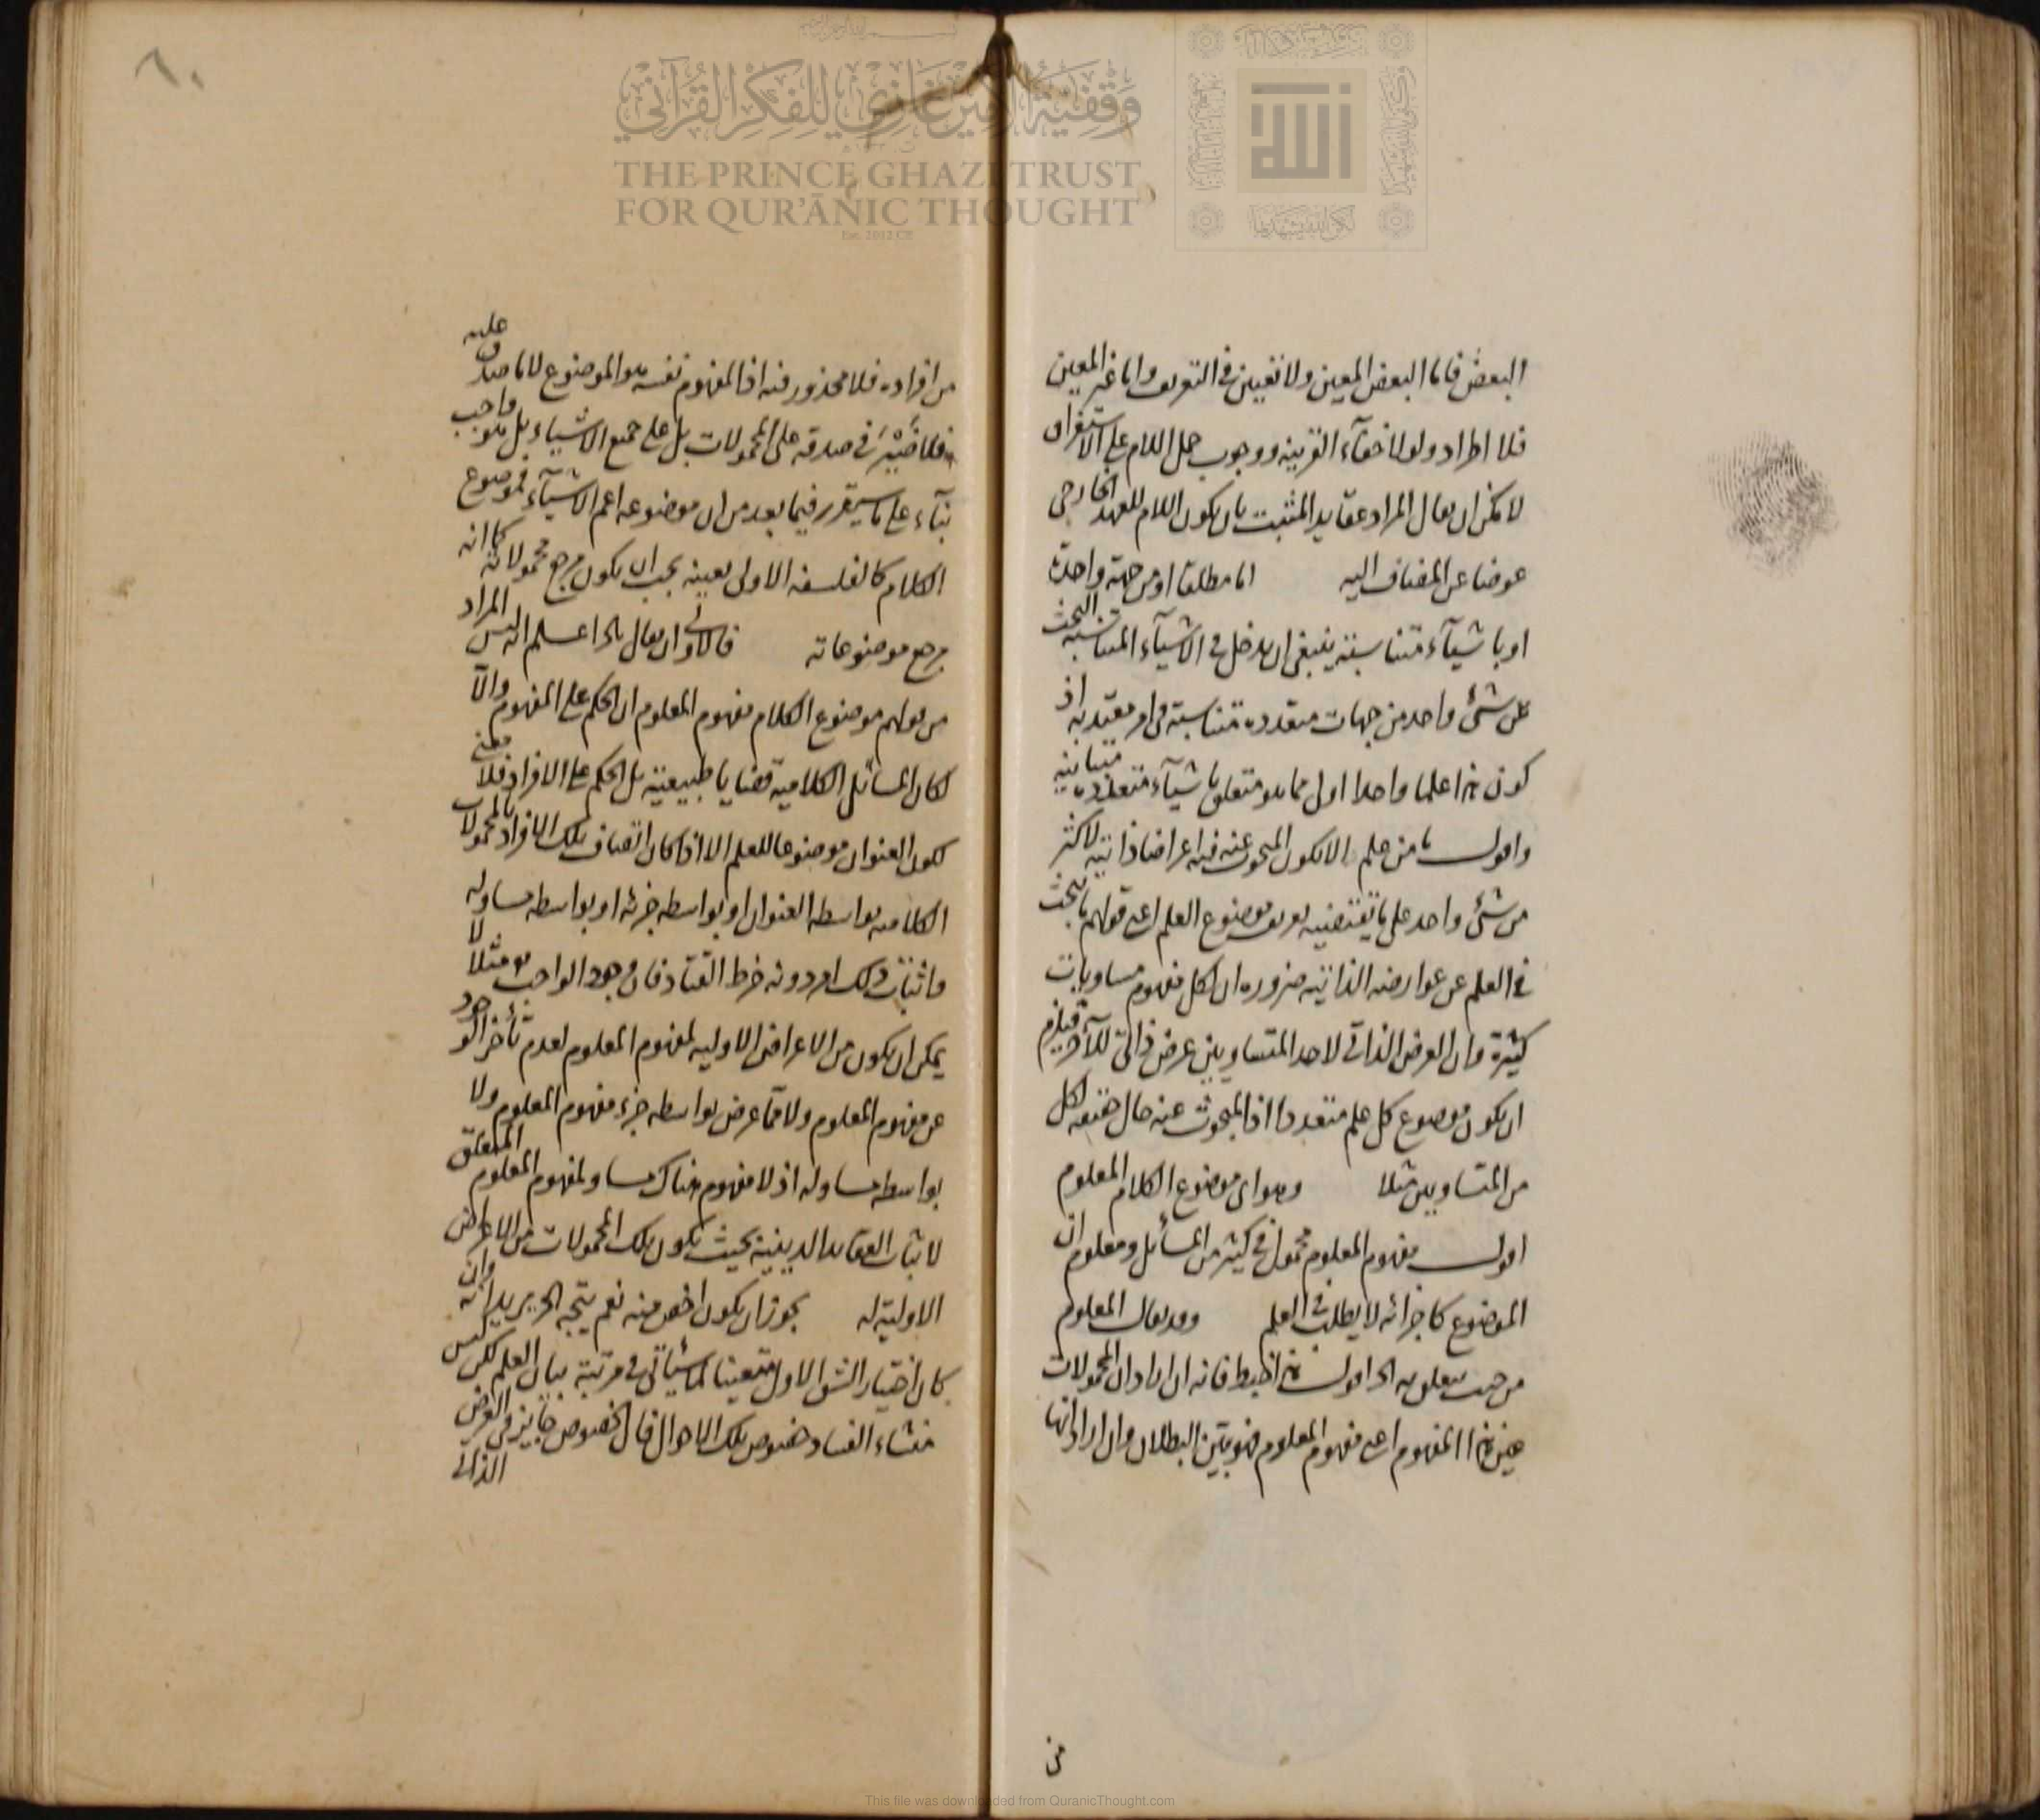 وقفية الأمير غازي للفكر القرآني
THE PRINCE GHAZI TRUST
FOR QUR'ĀNIC THOUGHT
Est. 2012 CE
الله
البعض فاما البعض المعين ولا تعيين فى التعريف واما غير المعين
فلا اطراد ولولا خفآء القرينه ووجوب حمل اللام على الاستغراق
لامكن ان يقال المراد عقايد المثبت بان يكون اللام للعهد الخارجى
عوضا عن المضاف اليه اما مطلقا او من جهة واحدة
او باشيآء متناسبة ينبغى ان يدخل فى الاشيآء المتناسبة البحث
عن شئ واحد من جهات متعدده متناسبة فى امر معتد به اذ
كون هذا علما واحدا اولى مما هو متعلق باشيآء متعدده متباينه
واقول ما من علم الا يكون المبحوث عنه فيه اعراضا ذاتيه لاكثر
من شئ واحد على ما يقتضيه تعريف موضوع العلم اعنى قولهم ما يبحث
فى العلم عن عوارضه الذاتيه ضروره ان لكل مفهوم مساويات
كثيرة وان العرض الذاتى لاحد المتساويين عرض ذاتى للآخر فيلزم
ان يكون موضوع كل علم متعددا اذ المبحوث عنه حال لكل
من المتساويين مثلا وهو اى موضوع الكلام المعلوم
اقول مفهوم المعلوم محمول فى كثير من المسائل ومعلوم ان
الموضوع كاجزائه لا يطلب فى العلم وقد يقال المعلوم
من حيث يتعلق به الخ اقول هذا خبط فانه ان اراد ان المحمولات
عين هذا المفهوم اعنى مفهوم المعلوم فهو بين البطلان وان اراد انها
من
٨٠
من افراده فلا محذور فيه اذ المفهوم نفسه هو الموضوع لا ما صدق عليه
فلا ضير فى صدقه على المحمولات بل على جميع الاشياء بل هو واجب
بنآء على ما سيقرر فيما بعد من ان موضوعه اعم الاشيآء فموضوع
الكلام كالفلسفه الاولى بعينه يجب ان يكون مرجع محمولاته كما انه
مرجع موضوعاته فالاولى ان يقال الخ اعلم انه ليس المراد
من قولهم موضوع الكلام مفهوم المعلوم ان الحكم على المفهوم والا
لكان المسائل الكلامية قضايا طبيعية بل الحكم على الافراد فلا معنى
لكون العنوان موضوعا للعلم الا اذا كان اتصاف تلك الافراد بالمحمولات
الكلاميه بواسطه العنوان او بواسطه جزئه او بواسطه مساو له
واثبات ذلك امر دونه خرط القتاد فان وجود الواجب مثلا لا
يمكن ان يكون من الاعراض الاوليه لمفهوم المعلوم لعدم تأخر الوجود
عن مفهوم المعلوم ولا مما عرض بواسطه جزء مفهوم المعلوم ولا
بواسطه مساو له اذ لا مفهوم هناك مساو لمفهوم المعلوم المتعلق
لاثبات العقايد الدينية بحيث يكون تلك المحمولات من الاعراض
الاولية له يجوز ان يكون اخص منه نعم يتجه الخ يريد انه وان
كان اختيار الشق الاول متعينا لما سيأتى فى مرتبة بيان العلم لكن ليس
منشاء الفساد خصوص تلك الاحوال فان الخصوص جايز فى العرض
الذاتى
This file was downloaded from QuranicThought.com